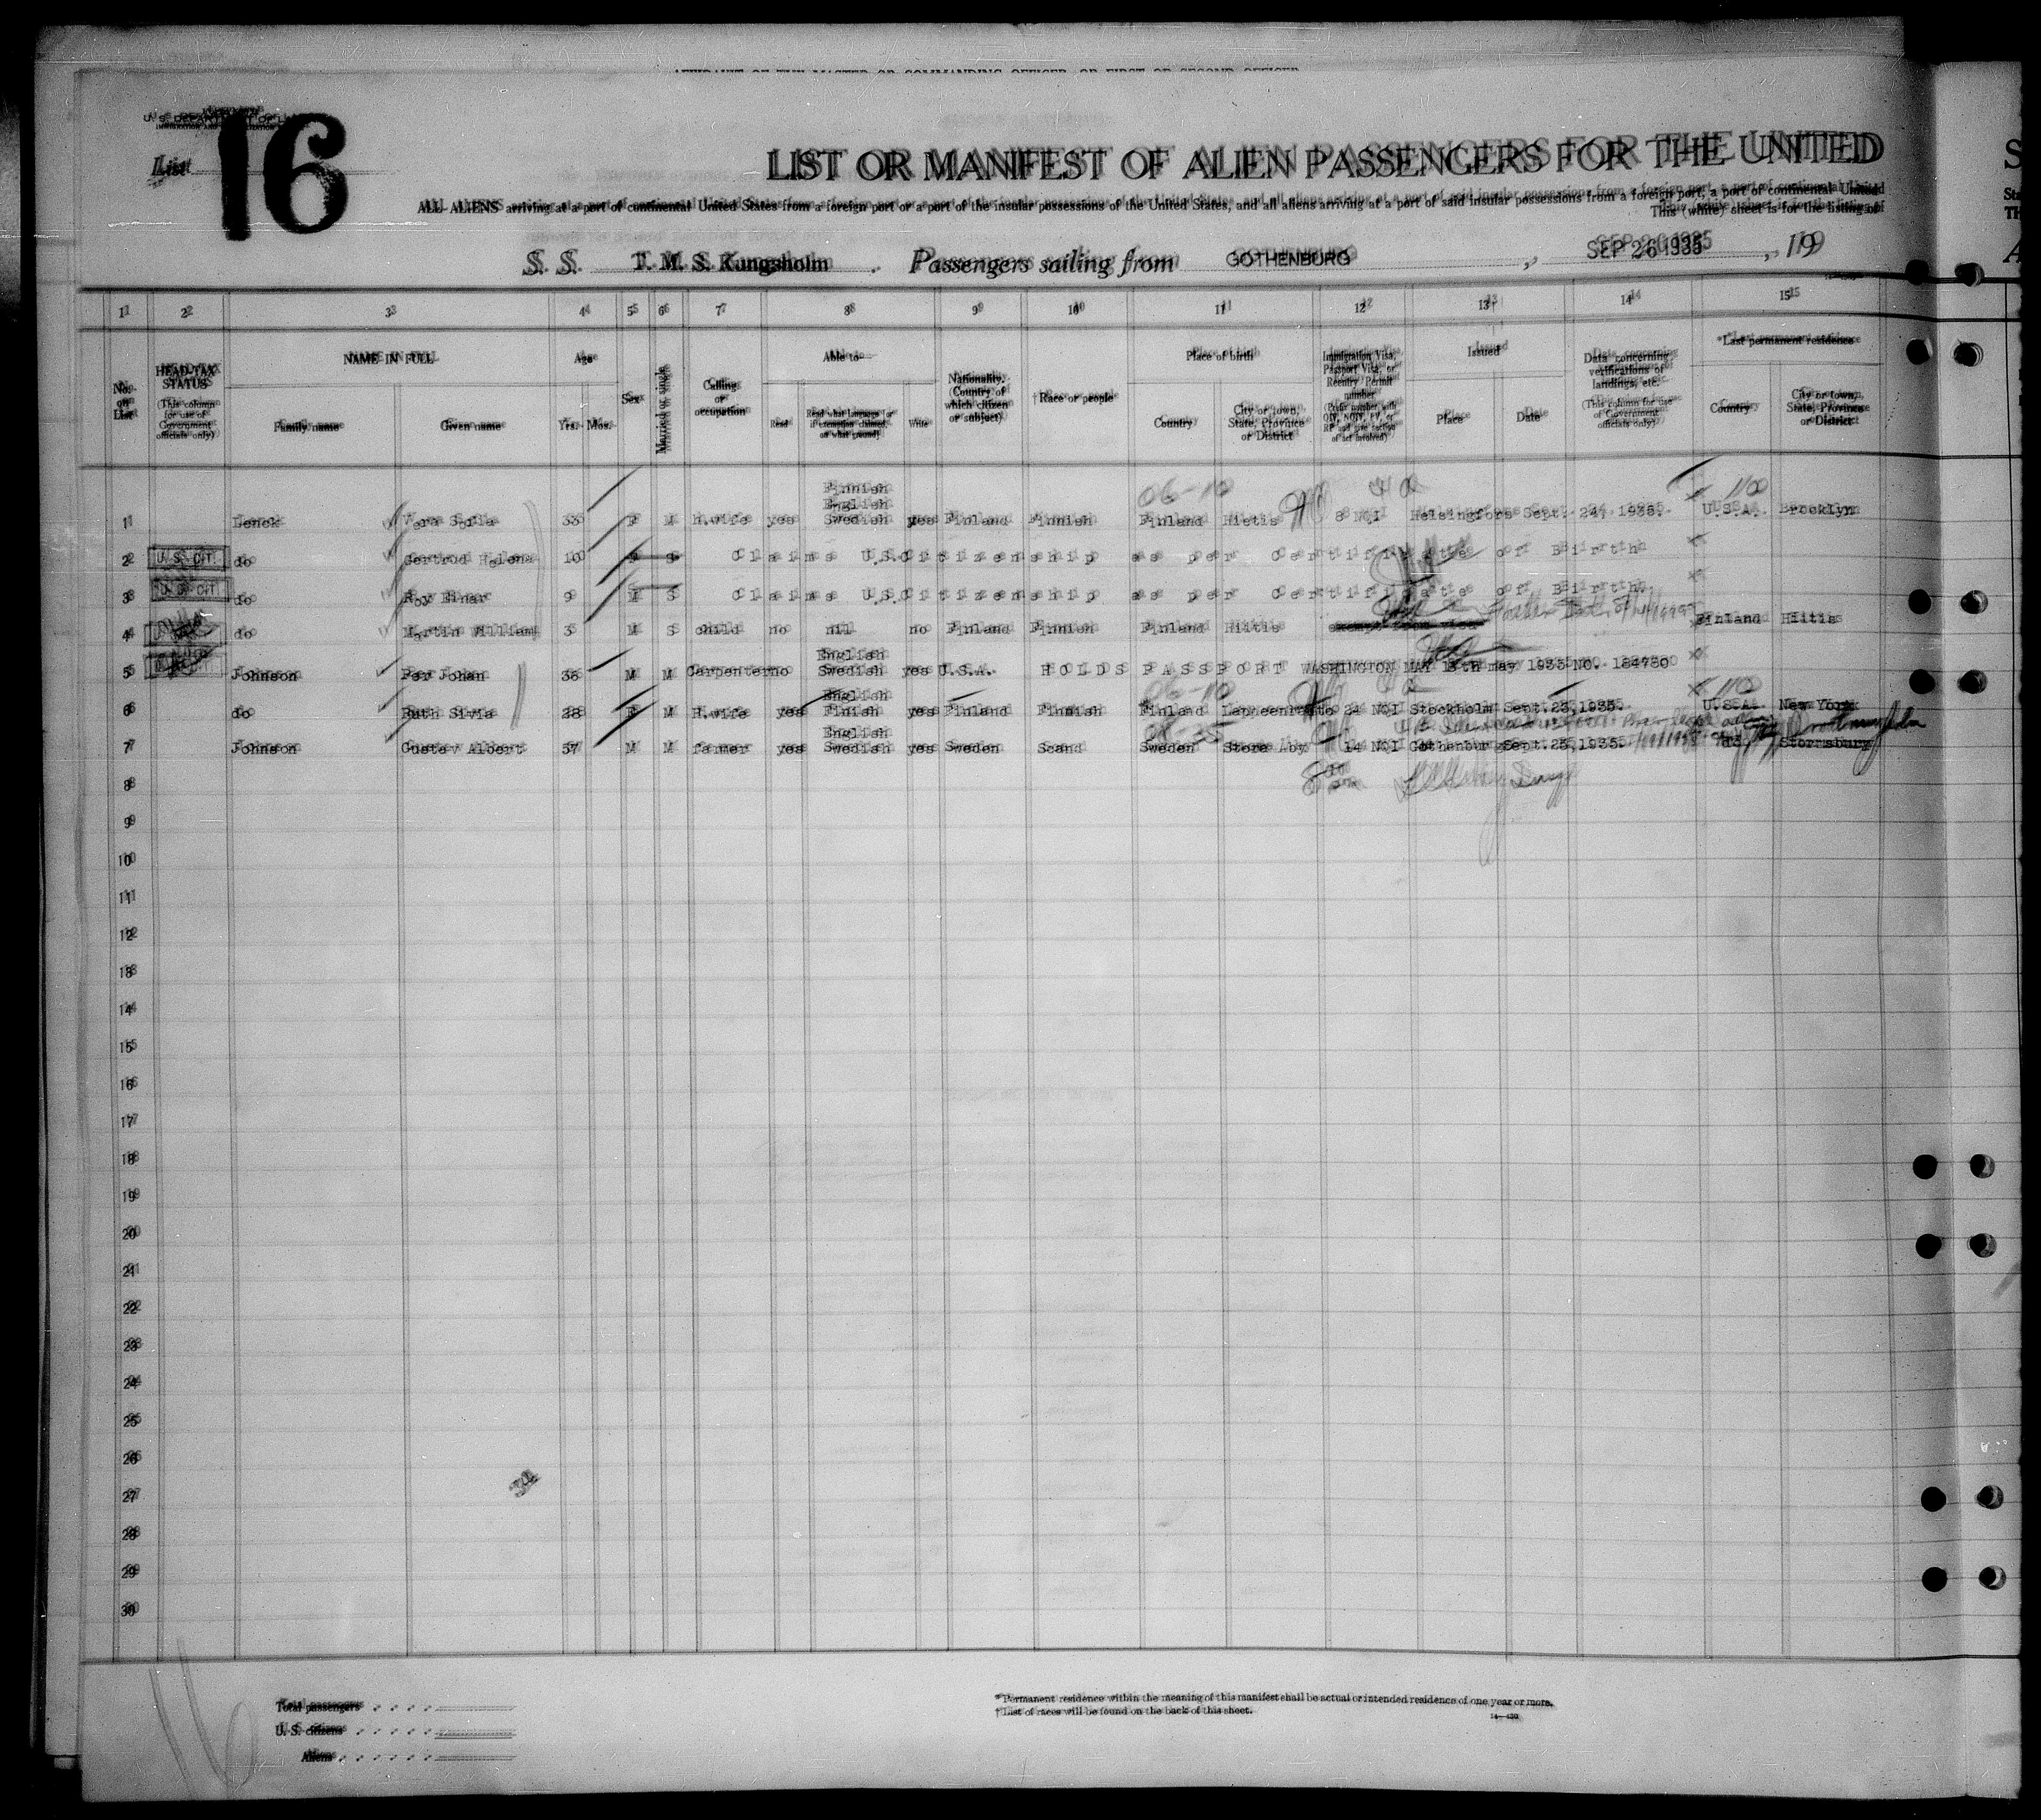 AFFIDAVIT OF THE MASTER OR COMMANDING OFFICER, OR FIRST OR SECOND OFFICER
U. S. DEPARTMENT OF LABOR
List 16
LIST OR MANIFEST OF ALIEN PASSENGERS FOR THE UNITED
ALL ALIENS arriving at a port of continental United States from a foreign port or a port of the insular possessions of the United States, and all aliens arriving at a port of said insular possessions from a foreign port, a port of continental United
This (white) sheet is for the listing of
S. S. T. M. S. Kungsholm Passengers sailing from GOTHENBURG , SEP 26 1935 , 19
1 2 3 4 5 6 7 8 9 10 11 12 13 14 15
No. on List
HEAD-TAX STATUS
(This column for use of Government officials only)
NAME IN FULL
Family name Given name
Age
Yrs. Mos.
Sex
Married or single
Calling or occupation
Able to—
Read
Read what language (or if exemption claimed, on what ground)
Write
Nationality. (Country of which citizen or subject)
†Race or people
Place of birth
Country
City or town, State, Province or District
Immigration Visa, Passport Visa, or Reentry Permit number
Issued
Place Date
Data concerning verifications of landings, etc.
(This column for use of Government officials only)
*Last permanent residence
Country
City or town, State, Province or District
06-10 110
Finnish
English
1 Lenck Vera Sofia 33 F M H.wife yes Swedish yes Finland Finnish Finland Hietis 8 NQI Helsingfors Sept. 24, 1935. U.S.A. Brooklyn
2 U. S. CIT. do Gertrud Helena 10 F S Claims U.S.Citizenship as per Certificate of Birth
3 U. S. CIT. do Roy Einar 9 M S Claims U.S.Citizenship as per Certificate of Birth.
4 do Martin William 3 M S child no nil no Finland Finnish Finland Hiitis Finland Hiitis
English
5 Johnson Per Johan 36 M M Carpenter no Swedish yes U.S.A. HOLDS PASSPORT WASHINGTON MAY 13th may 1935 NO. 184780
06-10 110
English
6 do Ruth Sivia 28 F M H.wife yes Finish yes Finland Finnish Finland 24 NQI Stockholm Sept.23,1935. U.S.A. New York
English
7 Johnson Gustav Albert 57 M M farmer yes Swedish yes Sweden Scand Sweden Stora Aby 14 NQI Gothenburg Sept.25,1935. do Stormsburg
8
9
10
11
12
13
14
15
16
17
18
19
20
21
22
23
24
25
26
27
28
29
30
Total passengers
U. S. citizens
Aliens
*Permanent residence within the meaning of this manifest shall be actual or intended residence of one year or more.
†List of races will be found on the back of this sheet.
16